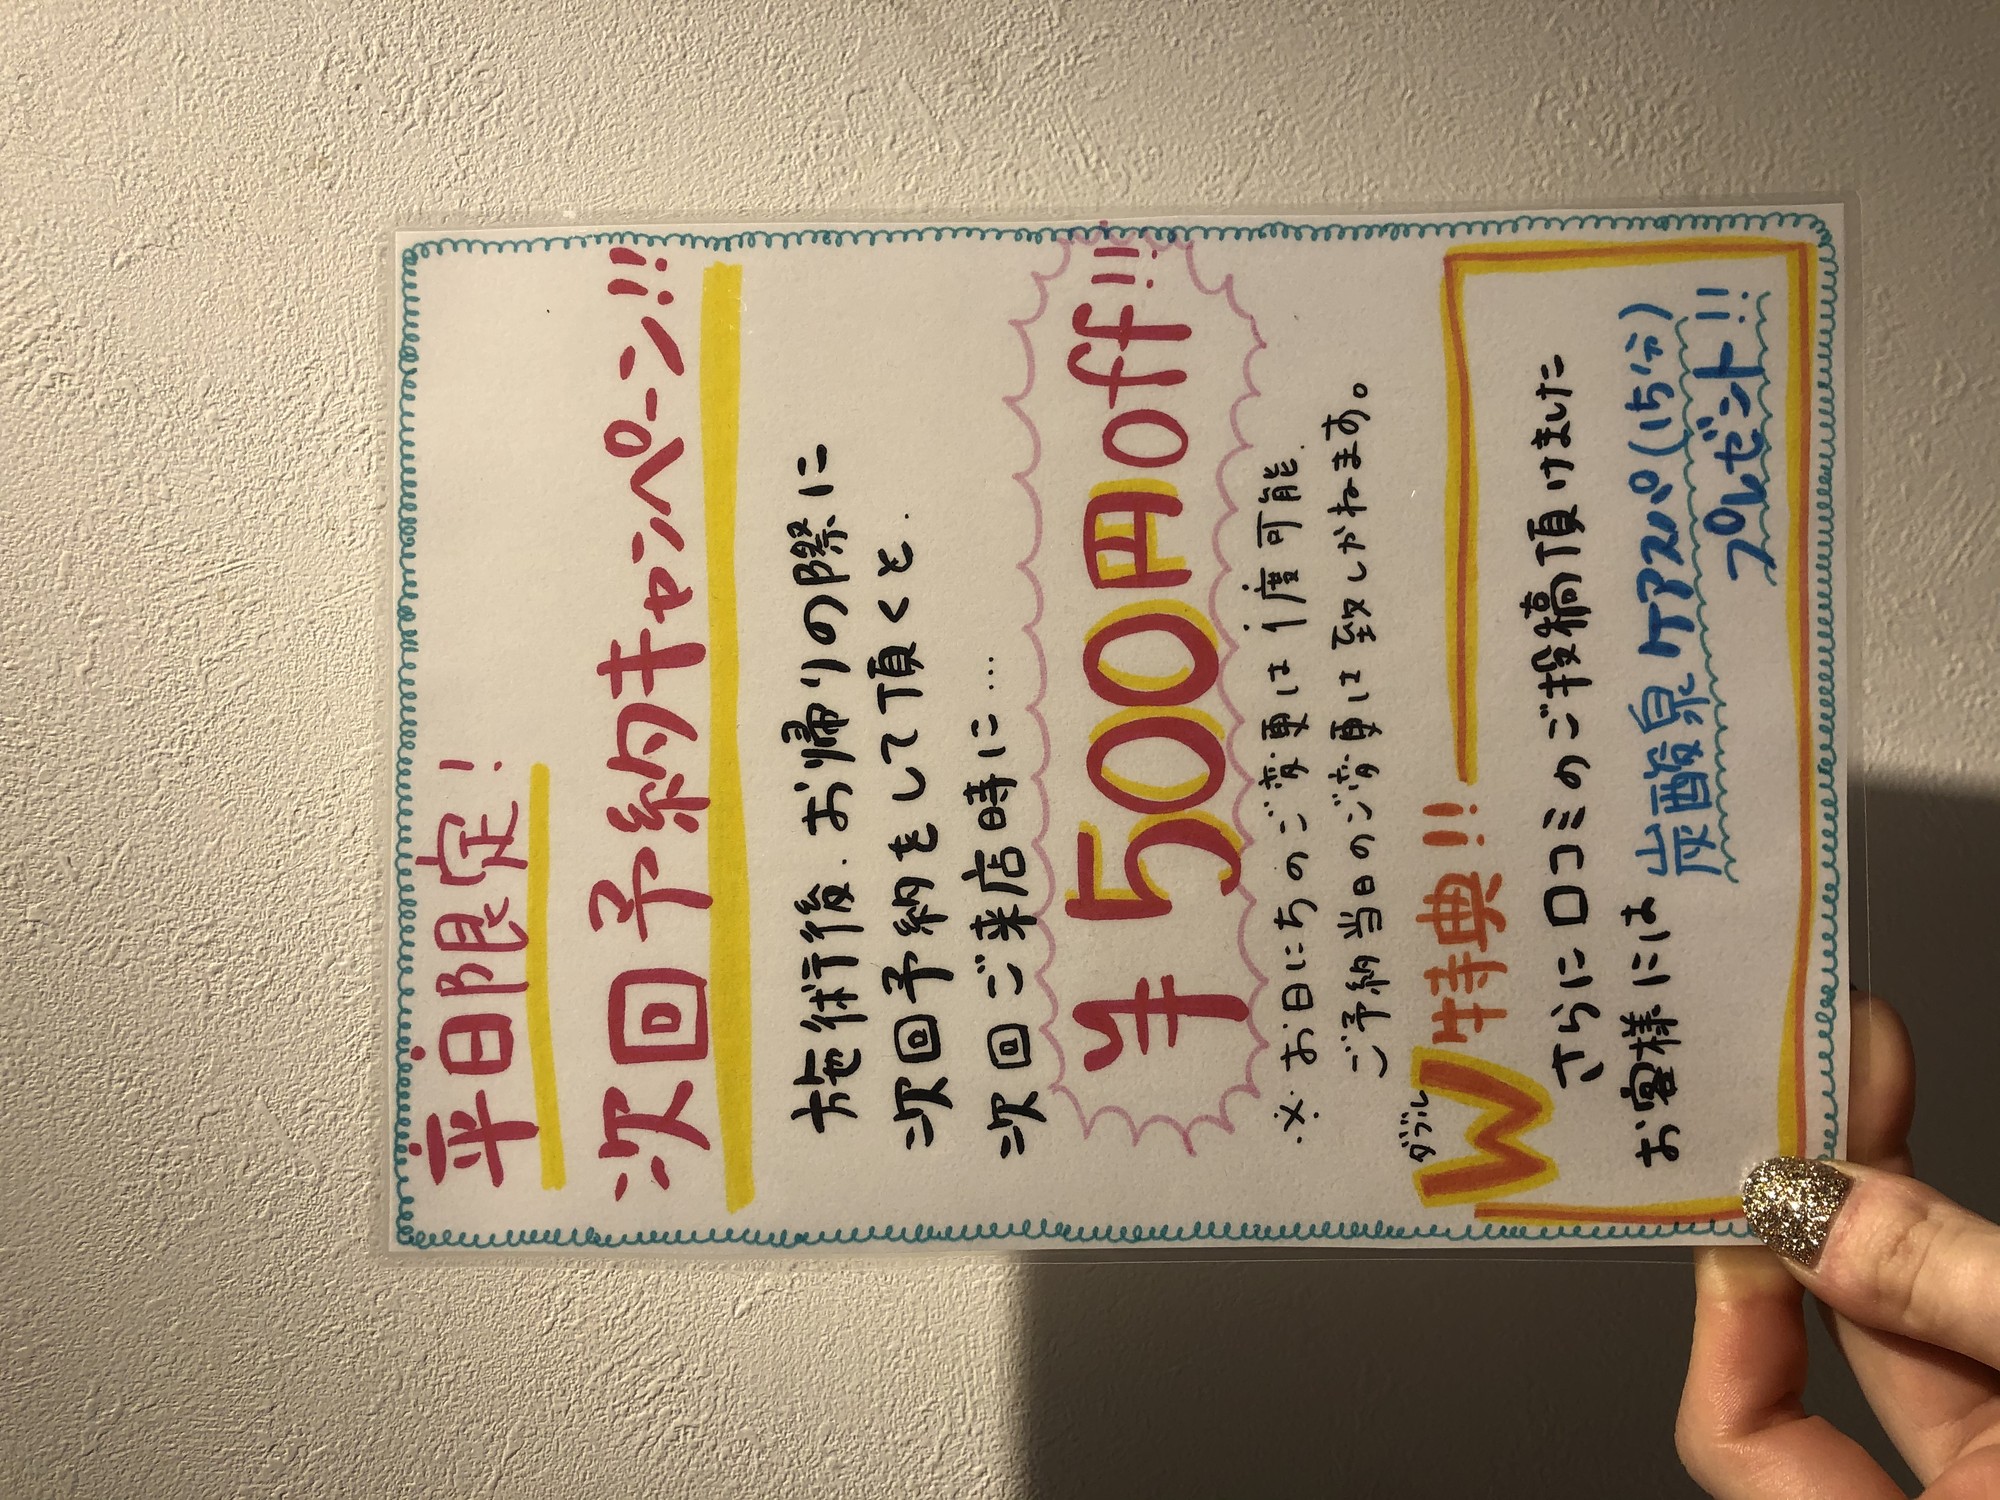 平日限定!
次回予約キャンペーン!!
施術後、お帰りの際に
次回予約をして頂くと、
次回ご来店時に....
¥500円off!!
※お日にちのご変更は1度可能、
ご予約当日のご変更は致しかねます。
ダブル
W特典!!
さらに口コミのご投稿頂けました
お客様には 炭酸泉ケアスパ(15分)
プレゼント!!